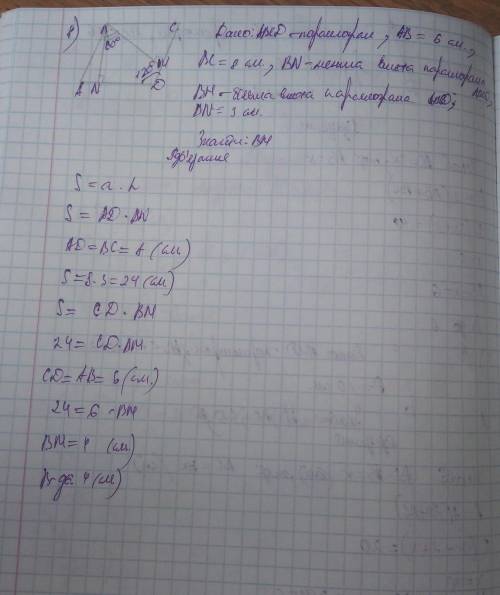 Дано: ABCD - паралелограм, AB = 6 см,
BC = 8 см, BN - менша висота паралелограма
BM - більша висота паралелограма ABCD,
BN = 3 см.
Знайти: BM
S = a · h
S = AD · BN
AD = BC = 8 (см)
S = 8 · 3 = 24 (см)
S = CD · BM
24 = CD · BM
CD = AB = 6 (см)
24 = 6 · BM
BM = 4 (см)
В-дь: 4 (см)